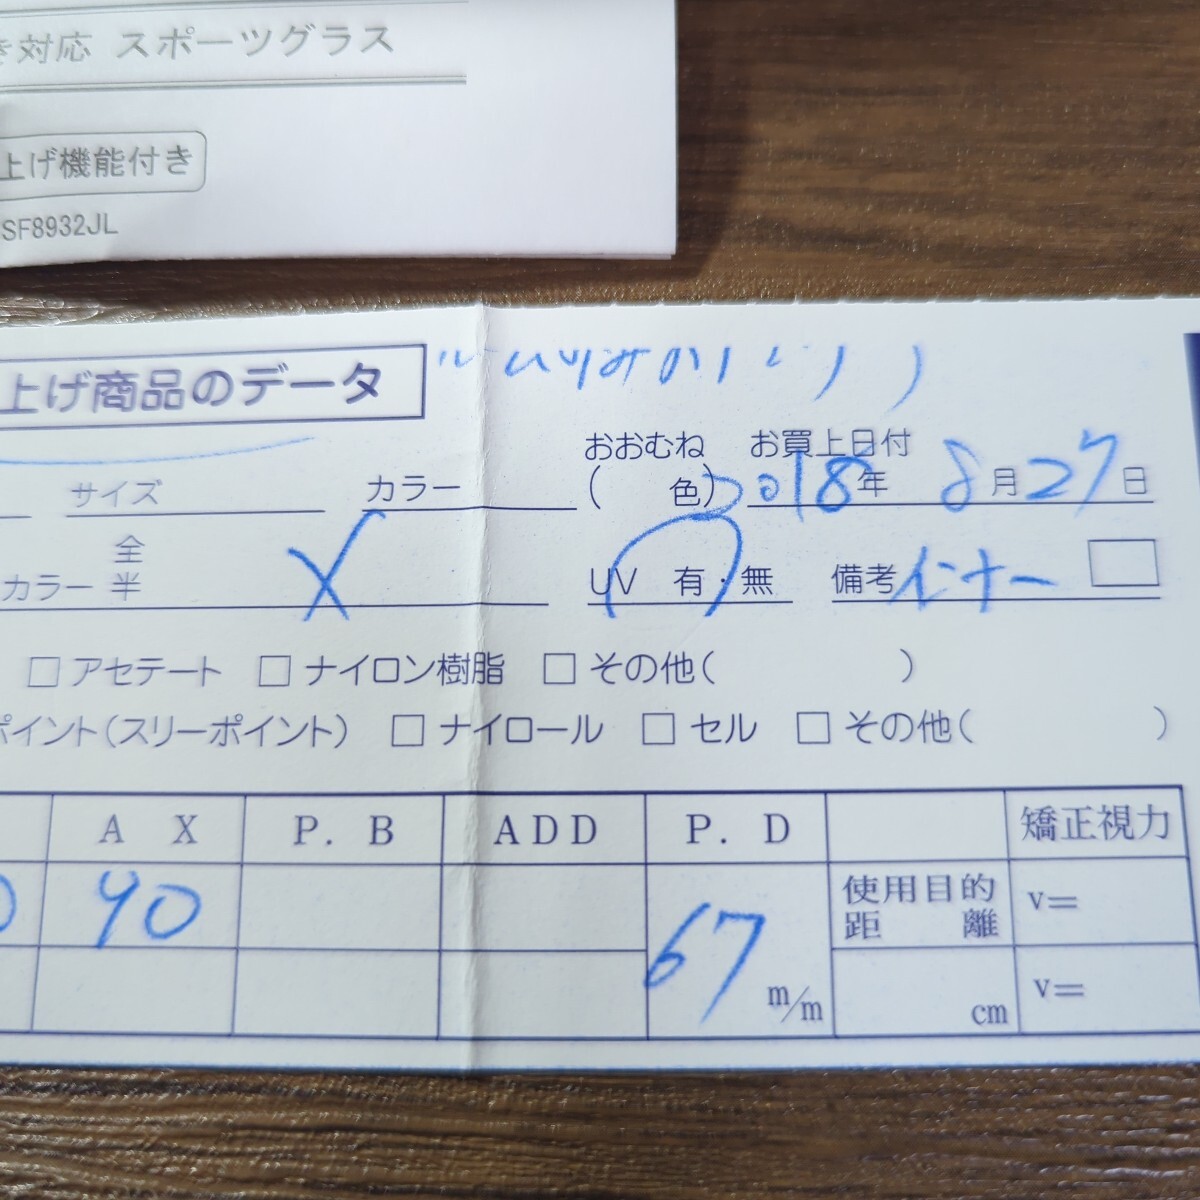 き対応 スポーツグラス
上げ機能付き
SF8932JL
上げ商品のデータ
サイズ カラー おおむね( 色) お買上日付 2018年 8月27日
カラー 全半 UV 有・無 備考 インナー
□ アセテート □ ナイロン樹脂 □ その他( )
ポイント(スリーポイント) □ ナイロール □ セル □ その他( )
A X P. B ADD P. D 矯正視力
90 67 m/m 使用目的距離 v=
cm v=